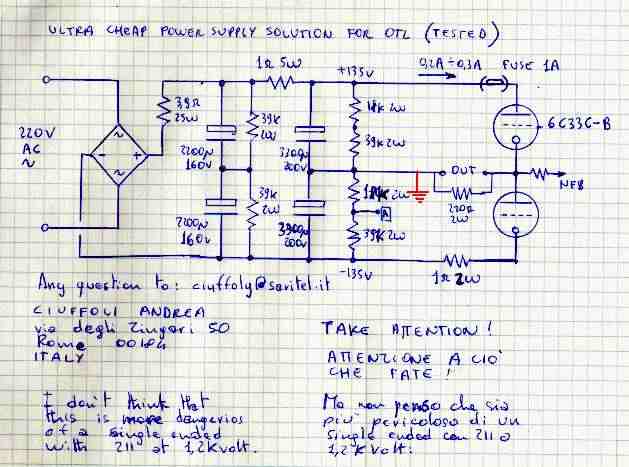 ULTRA CHEAP POWER SUPPLY SOLUTION FOR OTL (TESTED)
1Ω 5W
+135V
0,2A÷0,3A
FUSE 1A
39Ω
25W
39K
2W
2W
39K 2W
6C33C-B
220V
AC
~
~
-
+
~
2200µ
160V
3300µ
200V
OUT
NFB
2200µ
160V
39K
2W
3300µ
200V
2W
A
39K 2W
220Ω
2W
-135V
1Ω 2W
Any question to: ciuffoly@saritel.it
CIUFFOLI ANDREA
via degli Zingari 50
Rome 00184
ITALY
TAKE ATTENTION!
ATTENZIONE A CIO'
CHE FATE!
I don't think that
this is more dangerios
of a single ended
with 211 at 1,2kvolt.
Ma non penso che sia
più pericoloso di un
single ended con 211 a
1,2KVolt.